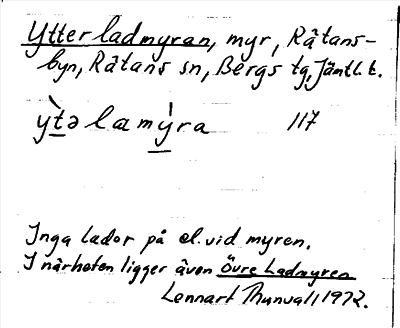 Ytterladmyran, myr, Rätans-
byn, Rätans sn, Bergs tg, Jämtl. l.
ỳtəlamỳra 117
Inga lador på el. vid myren.
I närheten ligger även Övre Ladmyren
Lennart Thunvall 1972.